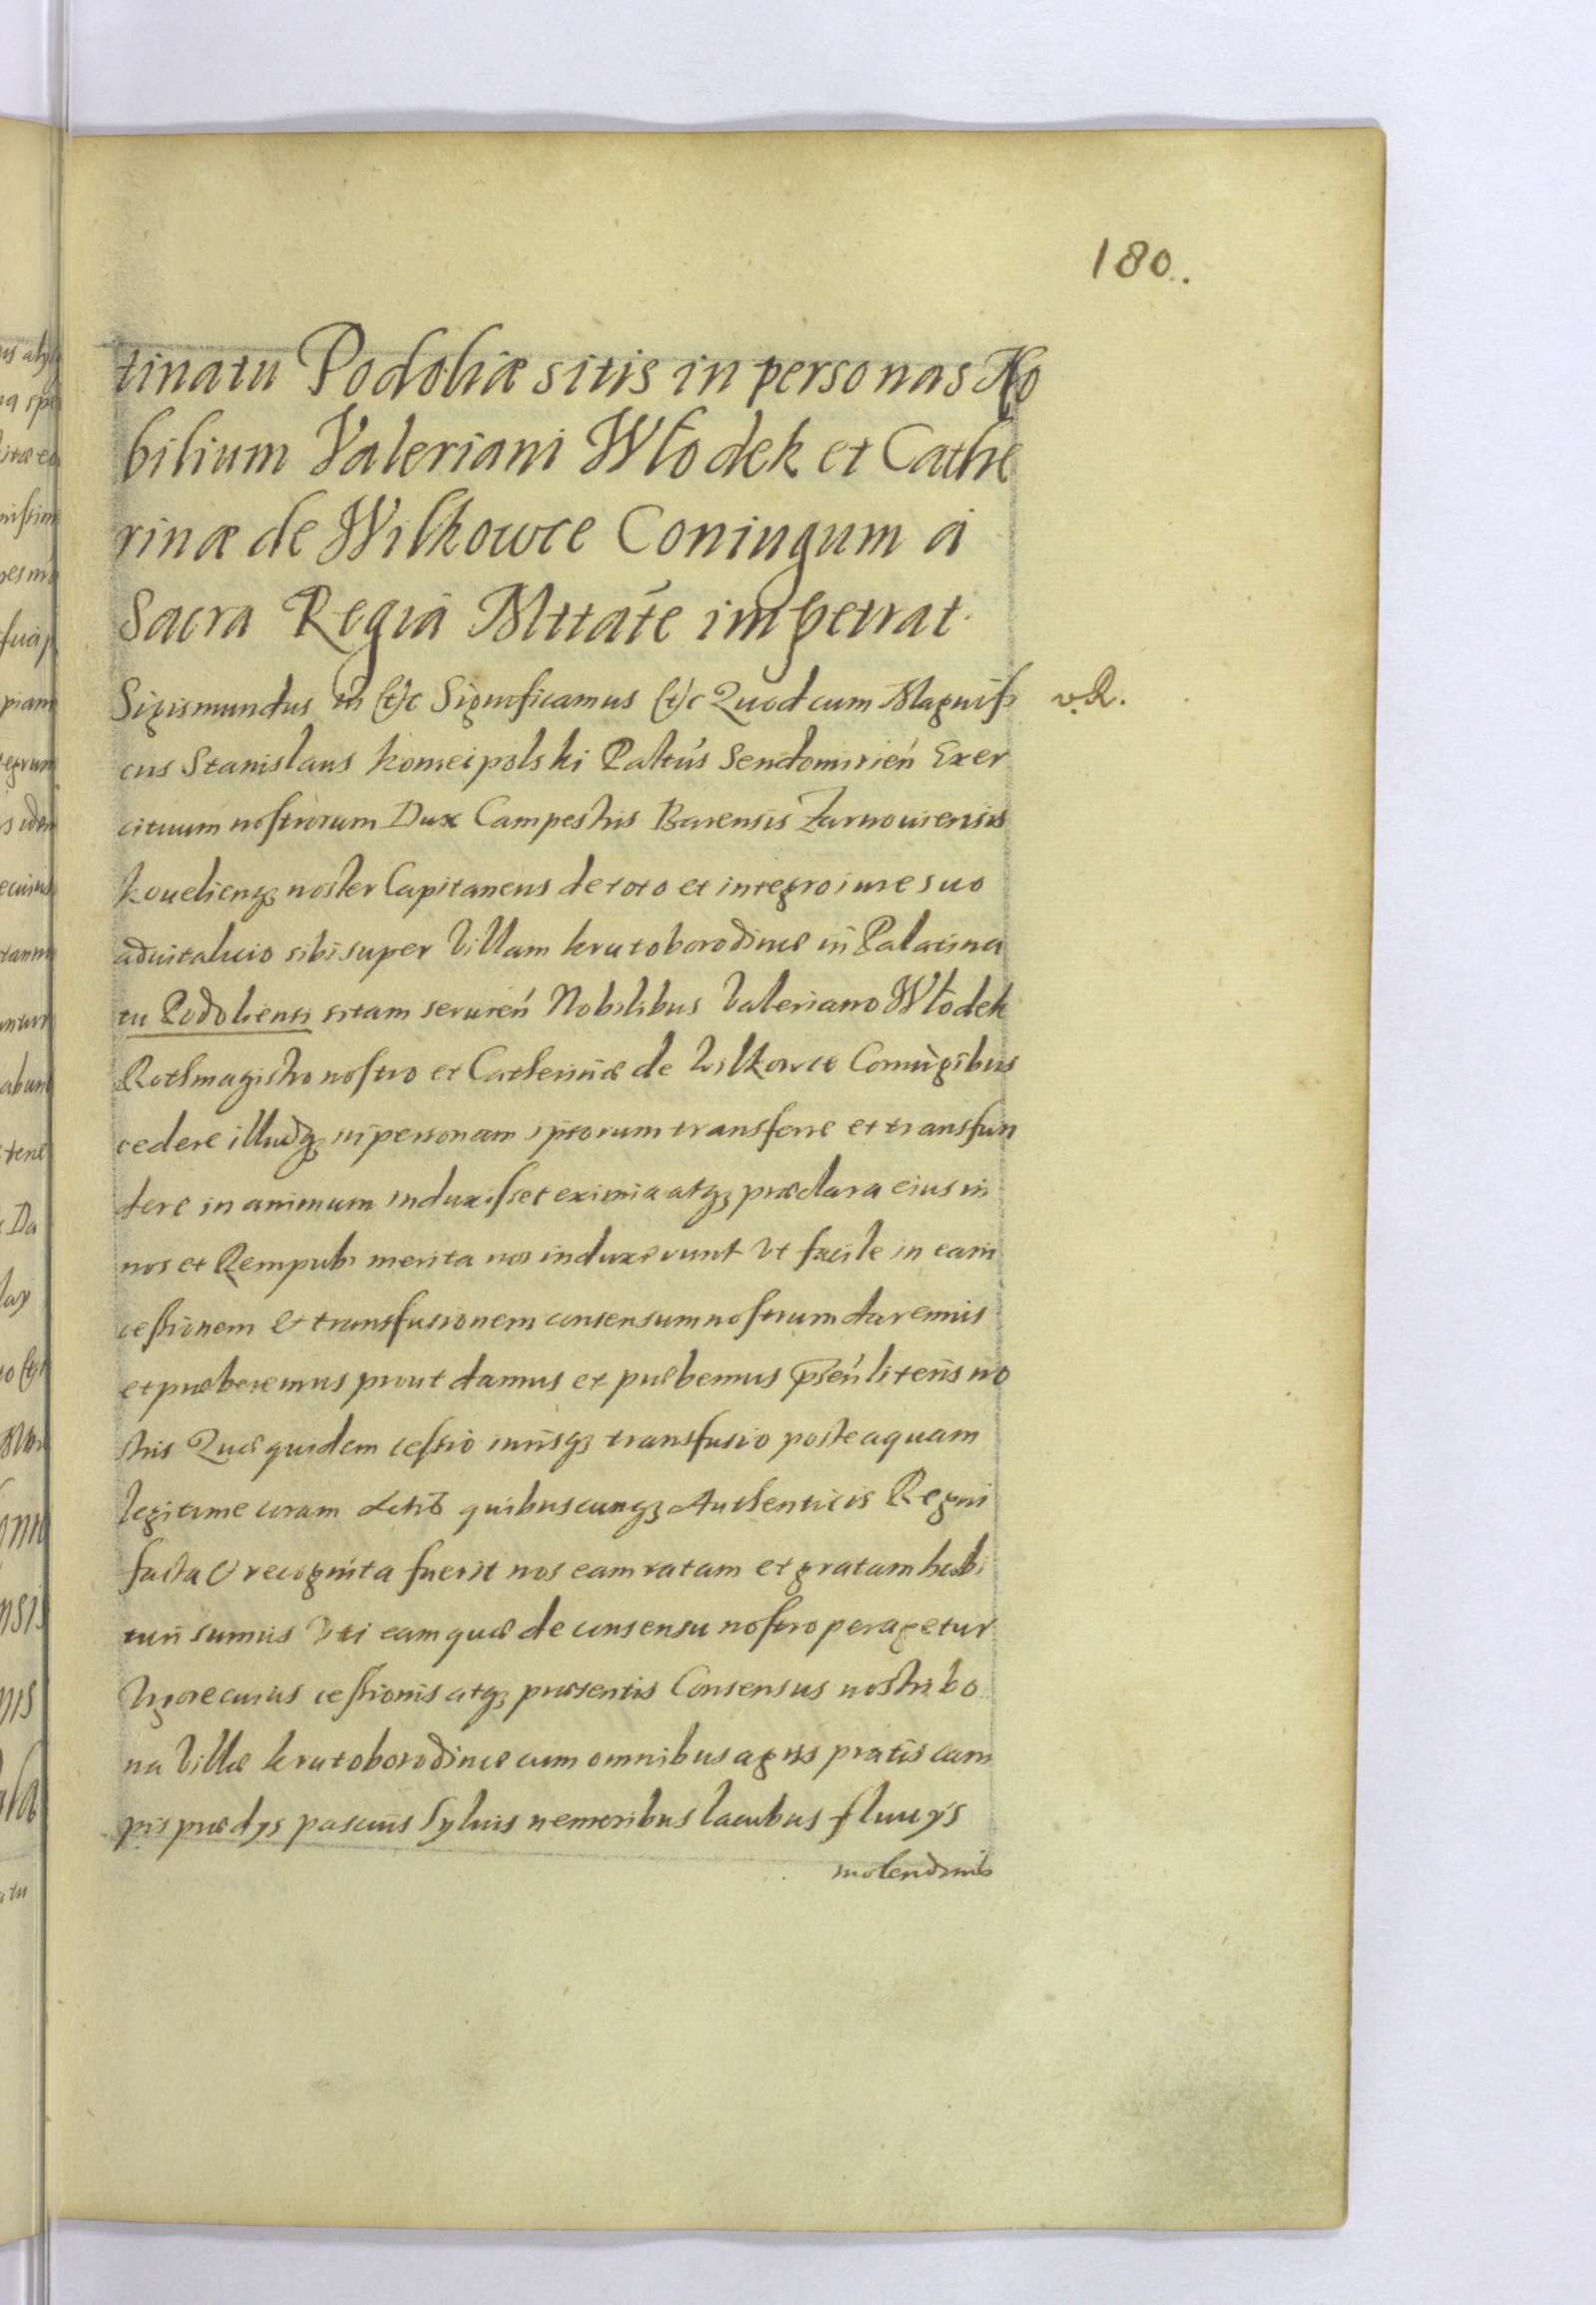 180.
tinatu Podoliæ sitis in personas No
bilium Valeriani Włodek et Cathe
rinæ de Wilkowce Coniugum á
Sacra Regiá Mttate impetrat.
Sigismundus III (et)c Significamus (et)c Quod cum Magnifi v.R.
cus Stanislaus Koniecpolski Paltus Sendomirień Exer
cituum nostrorum Dux Campestris Barensis Zarnouiensis
Koueliensq3 noster Capitaneus de toto et integro iure suo
aduitalicio sibi super Villam Krutoborodince in Palatina
tu Podoliensi sitam seruień Nobilibus Valeriano Włodek
Rothmagistro nostro et Catherinæ de Wilkowce Coniugibus
cedere illudq3 in personam iptorum transferre et transfun
dere in animum induxisset eximia atq3 præclara eius in
nos et Rempub: merita nos induxerunt Vt facile in eam
cessionem & transfusionem consensum nostrum daremus
et præberemus prout damus et præbemus pŕsen literis no
stris Quæ quidem cessio iurisq3 transfusio posteaquam
legitime coram Actis quibuscunq3 Authenticis Regni
facta & recognita fuerit nos eam ratam et gratam habi
turi sumus Vti eam quæ de consensu nostro peragetur
Vigore cuius cessionis atq3 præsentis Consensus nostri bo
na Villæ Krutoborodince cum omnibus agris pratis cam
pis prædys pascuis Syluis nemoribus lacubus fluuys
molendinis